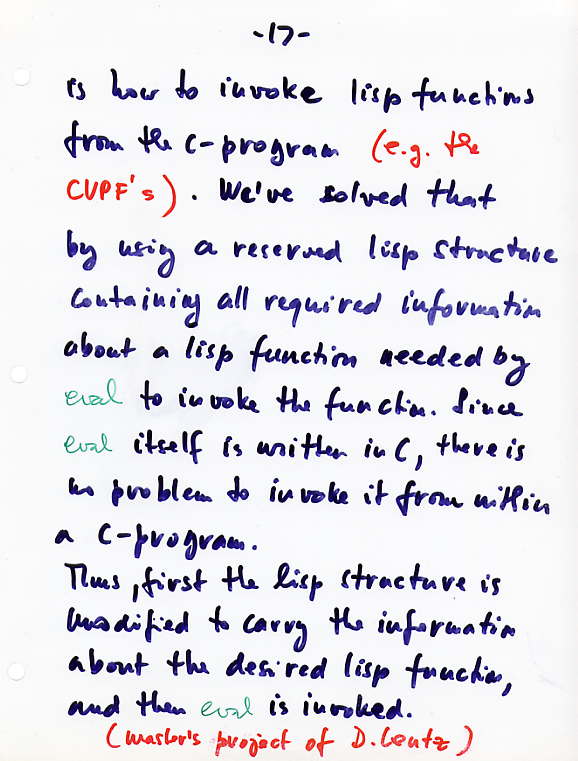 -17-
is how to invoke lisp functions
from the C-program (e.g. the
CUPF's). We've solved that
by using a reserved lisp structure
containing all required information
about a lisp function needed by
eval to invoke the function. Since
eval itself is written in C, there is
no problem to invoke it from within
a C-program.
Thus, first the lisp structure is
modified to carry the information
about the desired lisp function,
and then eval is invoked.
(master's project of D. Lentz)